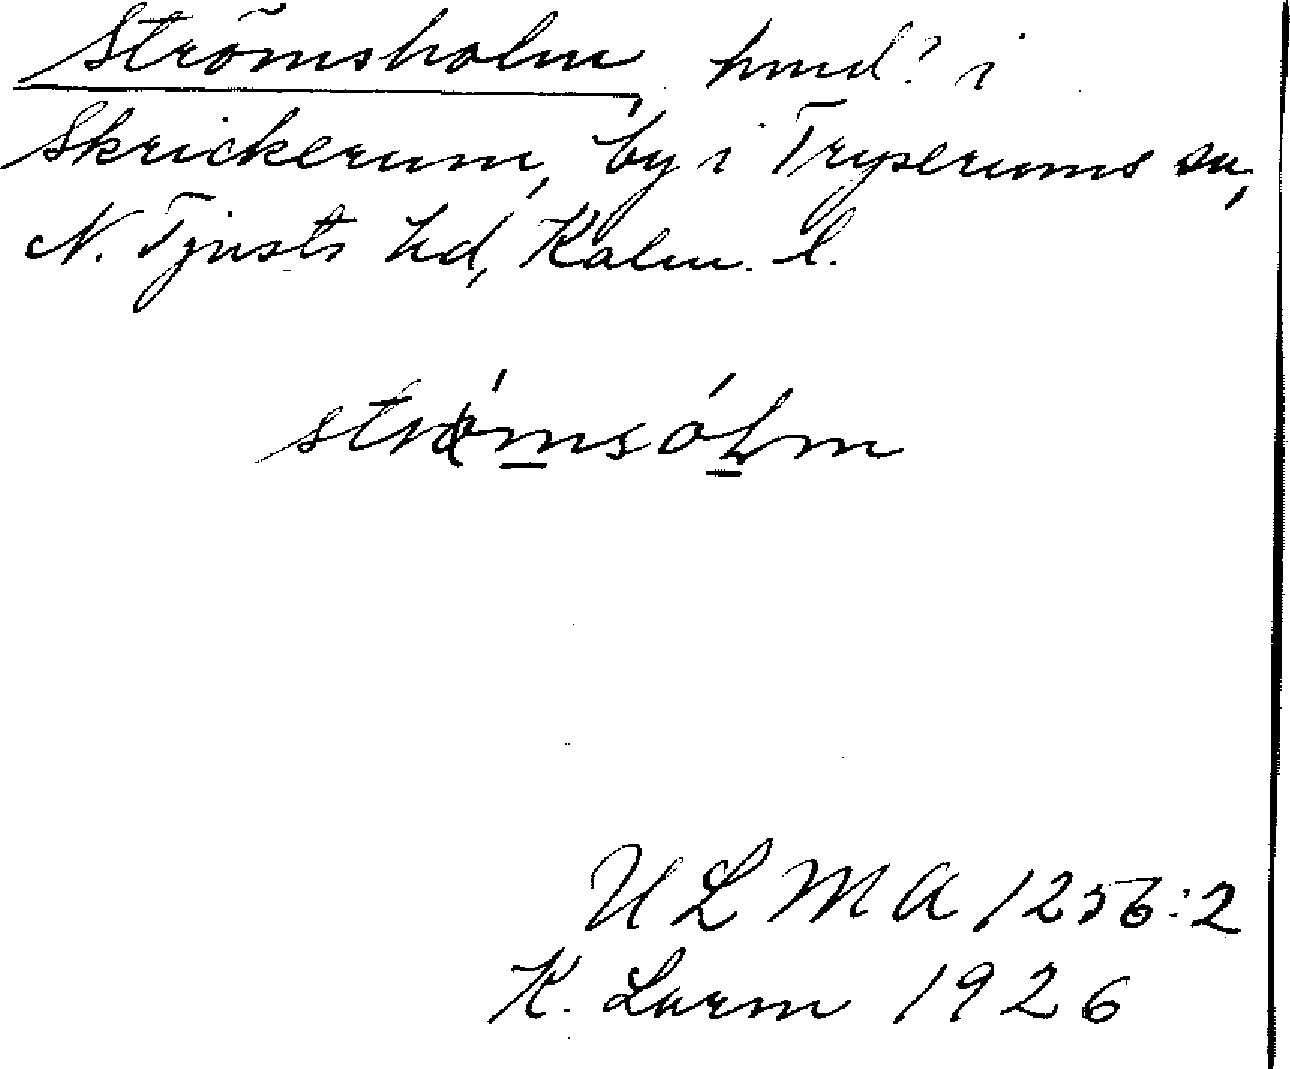 Strömsholm, hmd? i
Skrickerum, by i Tryserums sn,
N. Tjusts hd, Kalm. l.
strömsólm
ULMA 1256:2
K. Larm 1926